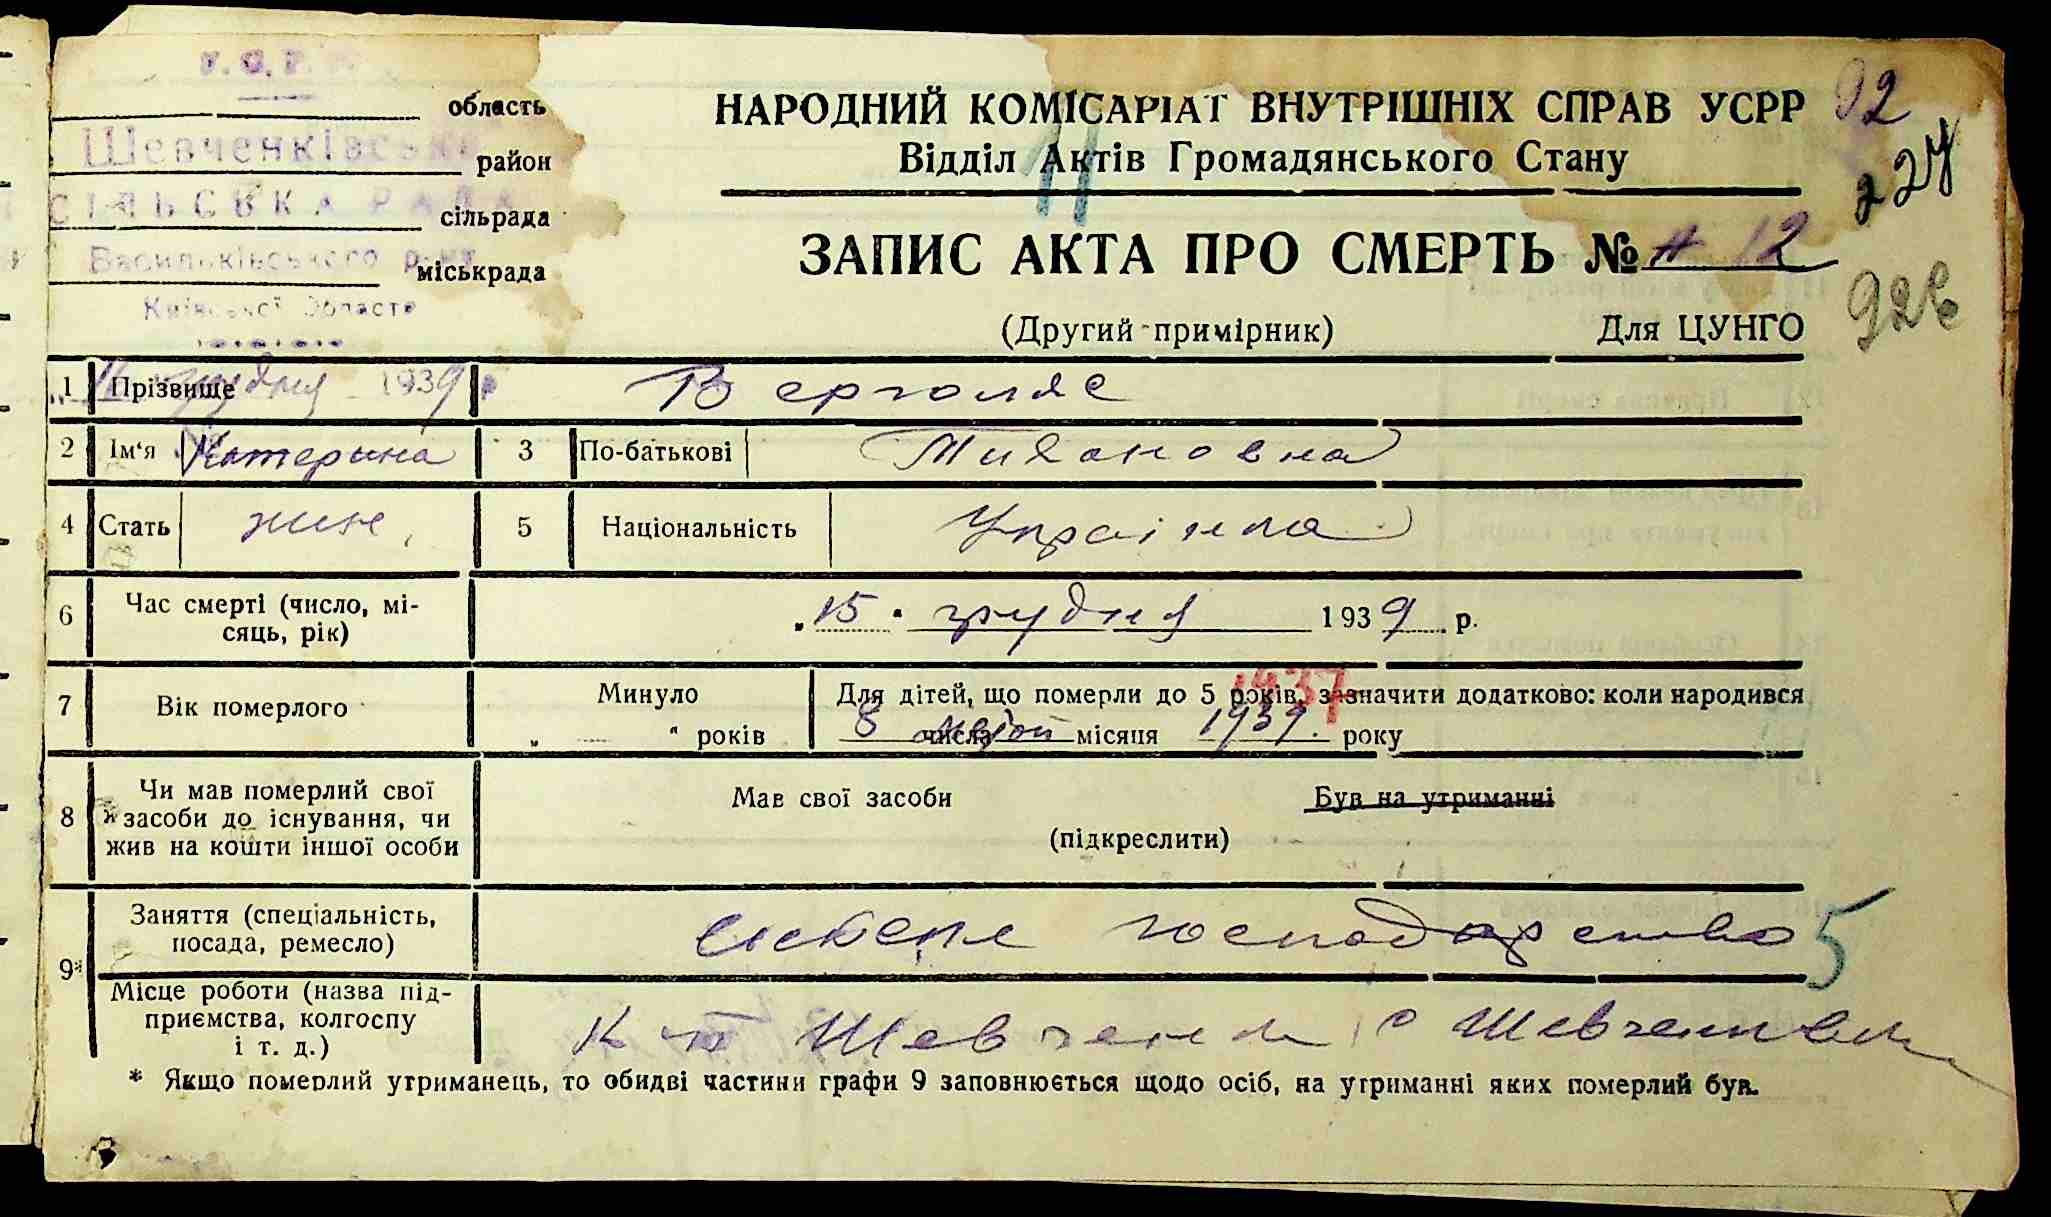 У.С.Р.Р.
область
Шевченківська
район
СІЛЬСЬКА РАДА
сільрада
Васильківського р-ну
міськрада
Київської Области
НАРОДНИЙ КОМІСАРІАТ ВНУТРІШНІХ СПРАВ УСРР
92
Відділ Актів Громадянського Стану
11
227
ЗАПИС АКТА ПРО СМЕРТЬ № 12
(Другий примірник) Для ЦУНГО
1 Прізвище Верголяс
16 грудня 1939
2 Ім'я Катерина 3 По-батькові Тихановна
4 Стать жін. 5 Національність Українка
6 Час смерті (число, місяць, рік) „15" грудня 1939 р.
7 Вік померлого Минуло „ " років Для дітей, що померли до 5 років, зазначити додатково: коли народився
1937
8 числа місяця 1939. року
8 Чи мав померлий свої засоби до існування, чи жив на кошти іншої особи Мав свої засоби Був на утриманні
(підкреслити)
9* Заняття (спеціальність, посада, ремесло) господарство
5
Місце роботи (назва підприємства, колгоспу і т. д.) К-п Шевченка с Шевченківка
* Якщо померлий утриманець, то обидві частини графи 9 заповнюється щодо осіб, на утриманні яких померлий був.